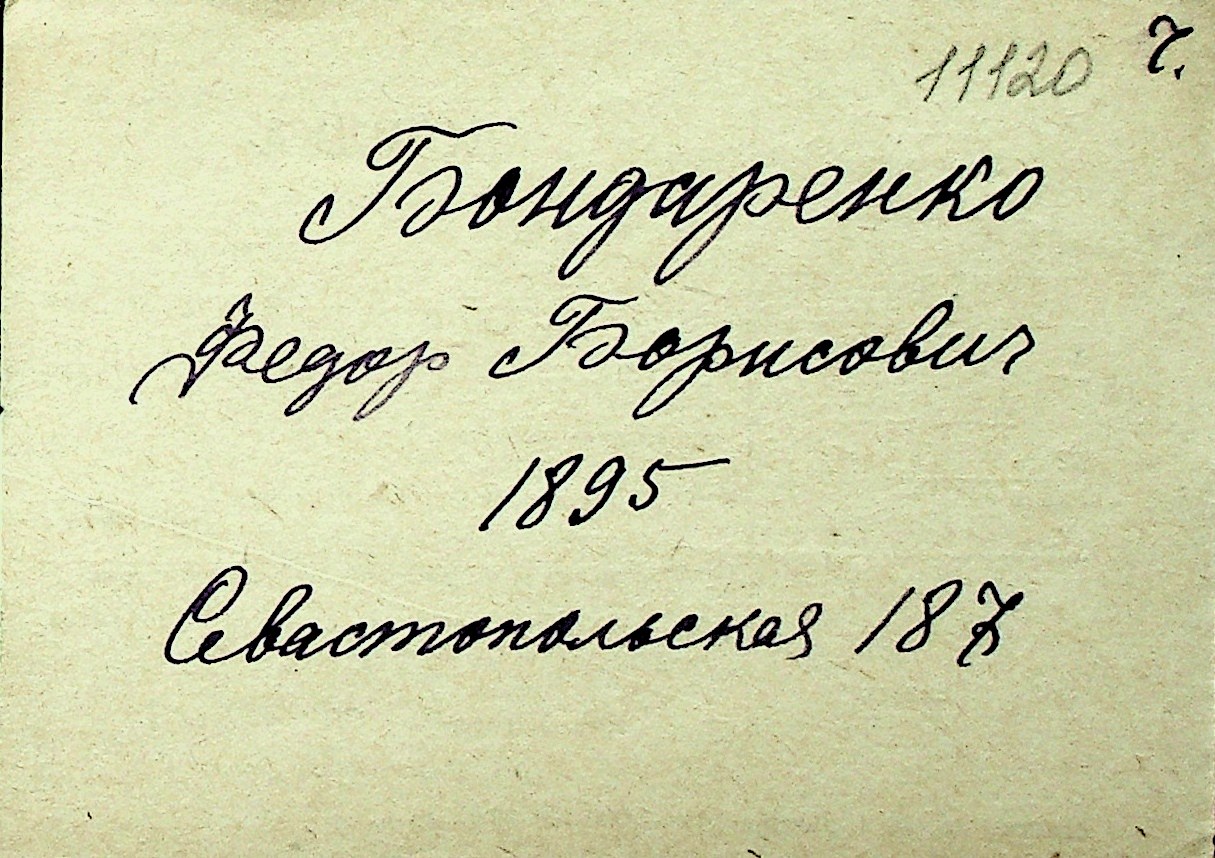 11120 7.
Бондаренко
Федор Борисович
1895
Севастопольская 187